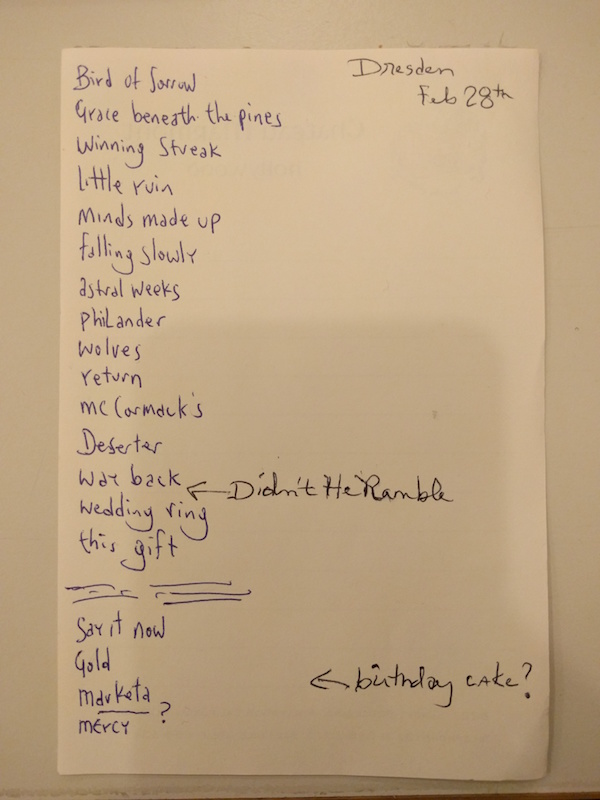 Dresden
Feb 28th
Bird of Sorrow
Grace beneath the pines
Winning Streak
little ruin
Minds made up
falling slowly
astral weeks
phiLander
wolves
return
mc Cormack's
Deserter
way back
← Didn't He Ramble
wedding ring
this gift
Say it now
Gold
← birthday cake?
marketa
mercy ?